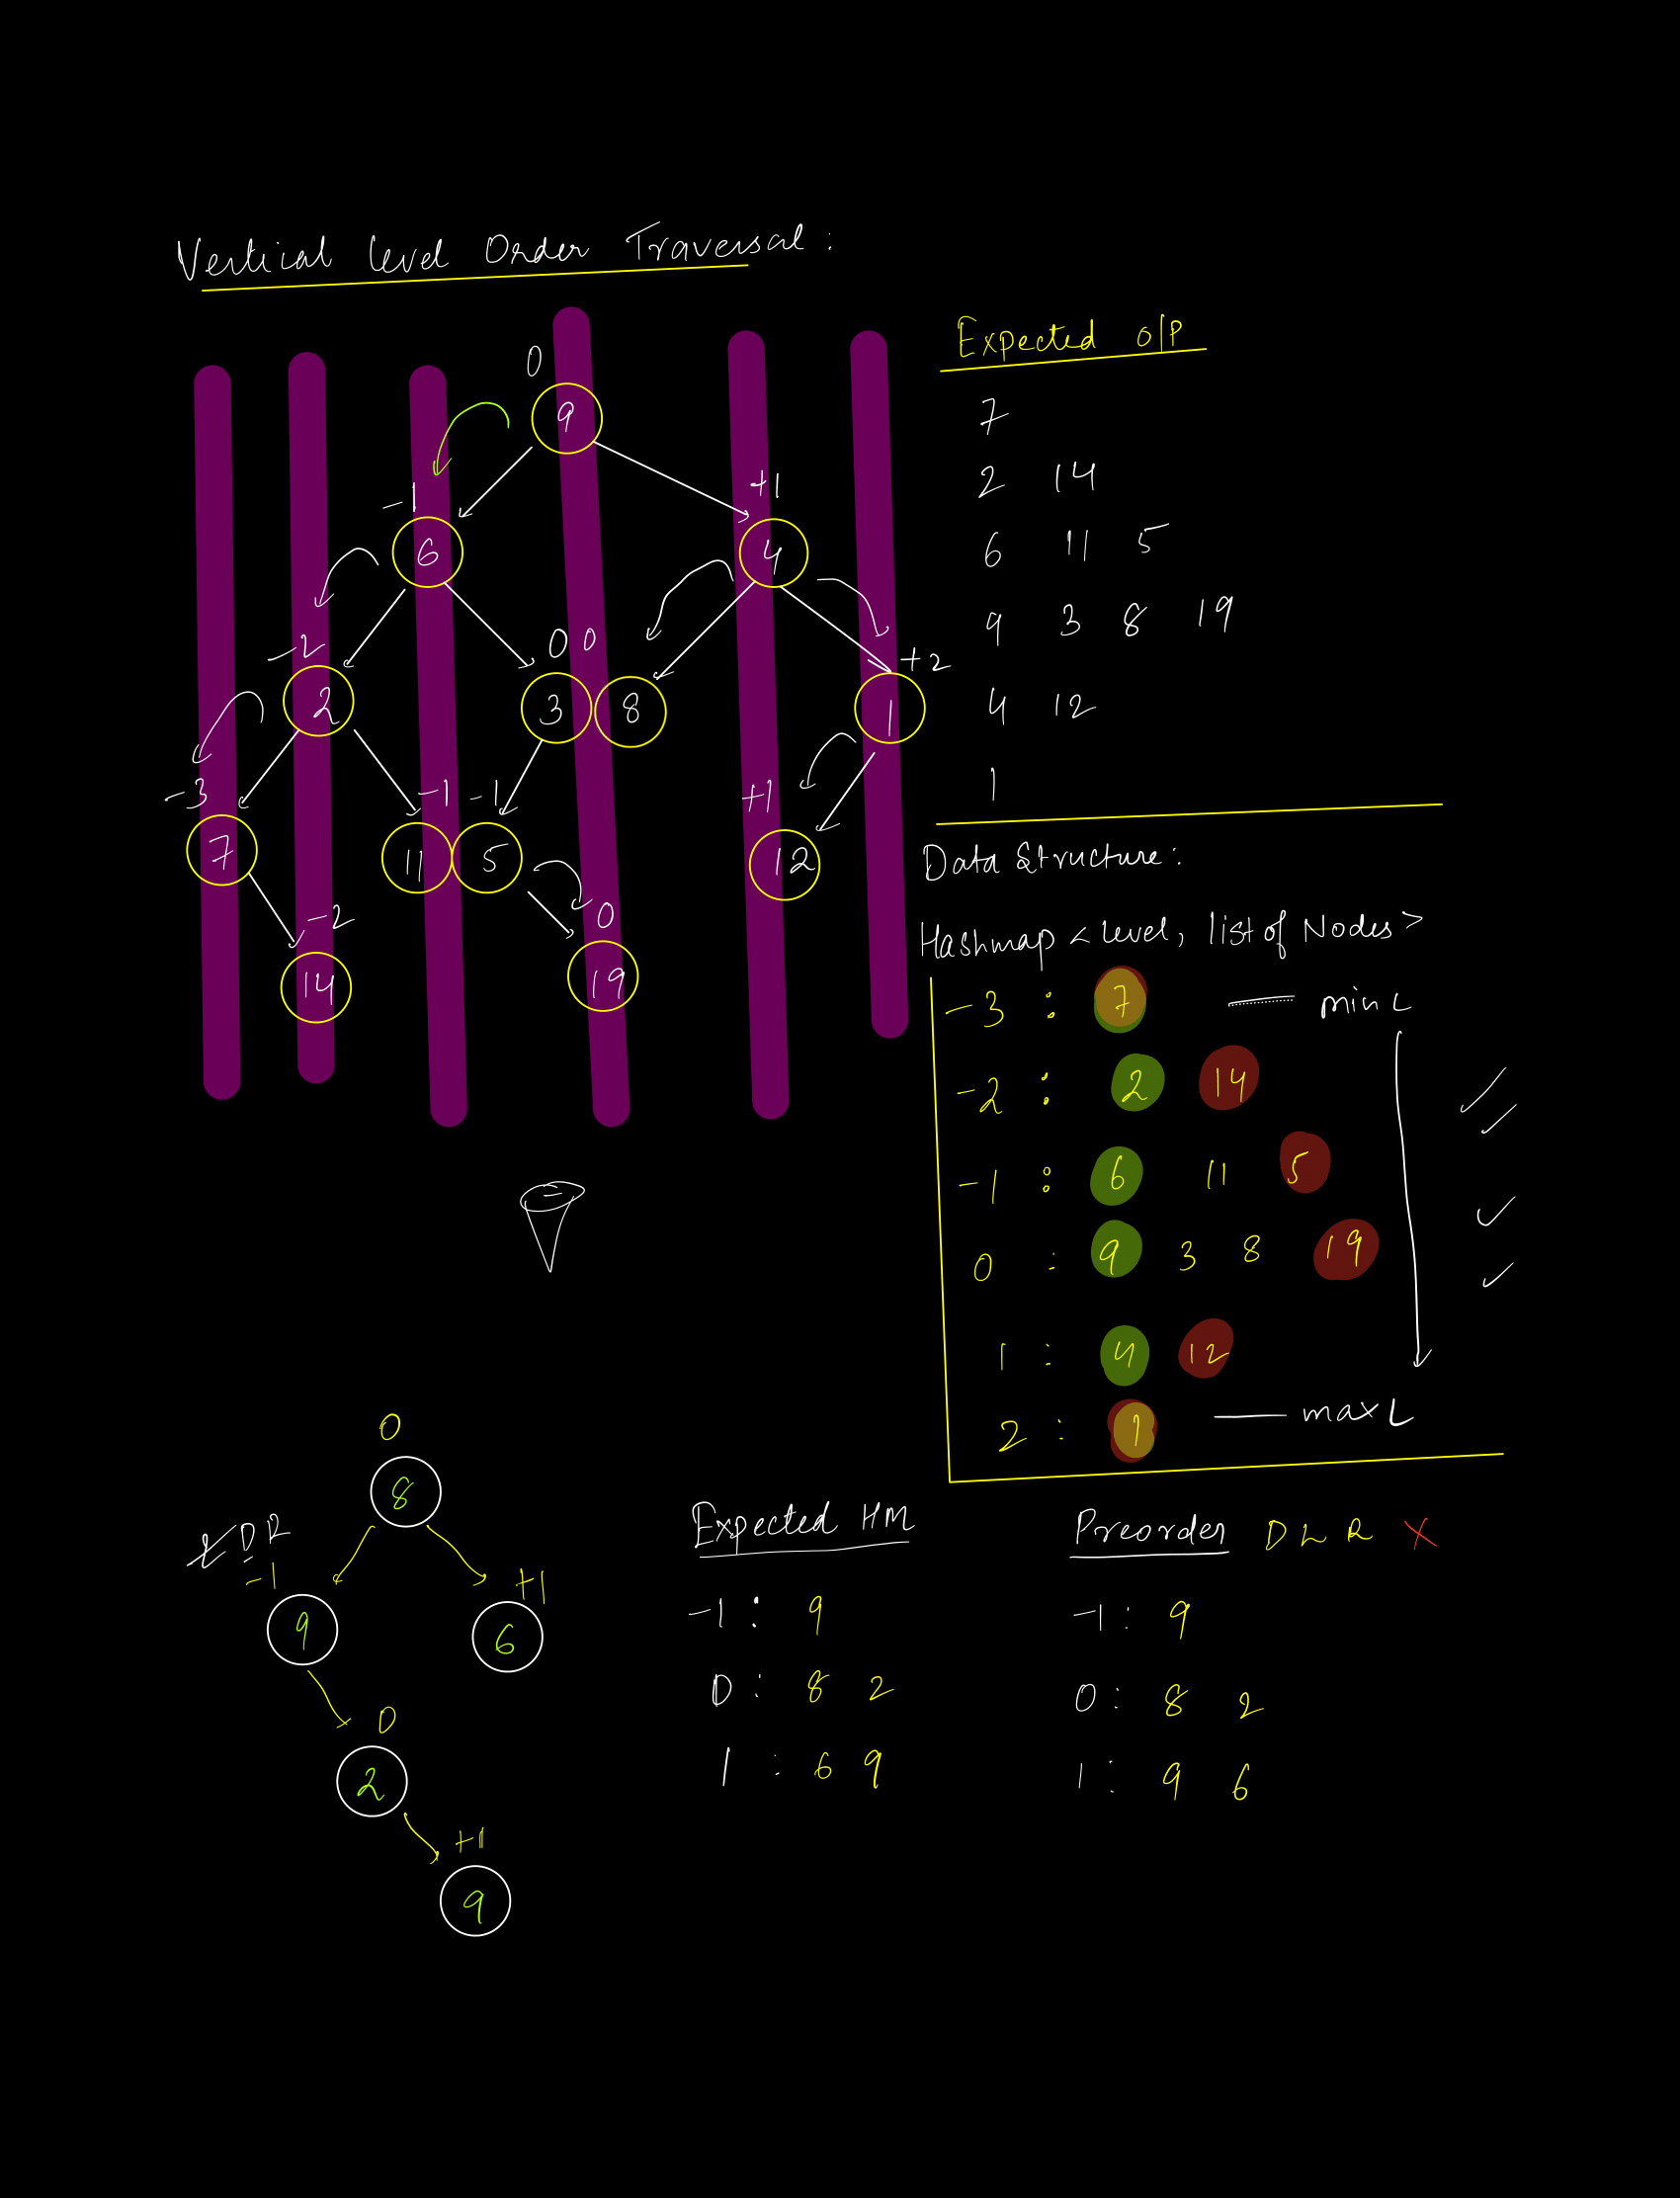 Vertical level Order Traversal :
0
9
-1
+1
6
4
-2
0 0
+2
2
3
8
1
-3
-1
-1
+1
7
11
5
12
-2
0
14
19
Expected o/p
7
2 14
6 11 5
9 3 8 19
4 12
1
Data Structure :
Hashmap < level, list of Nodes >
-3 : 7 — min L
-2 : 2 14
-1 : 6 11 5
0 : 9 3 8 19
1 : 4 12
2 : 1 — max L
0
8
L D R
-1
+1
9
6
0
2
+1
9
Expected HM
-1 : 9
0 : 8 2
1 : 6 9
Preorder D L R X
-1 : 9
0 : 8 2
1 : 9 6